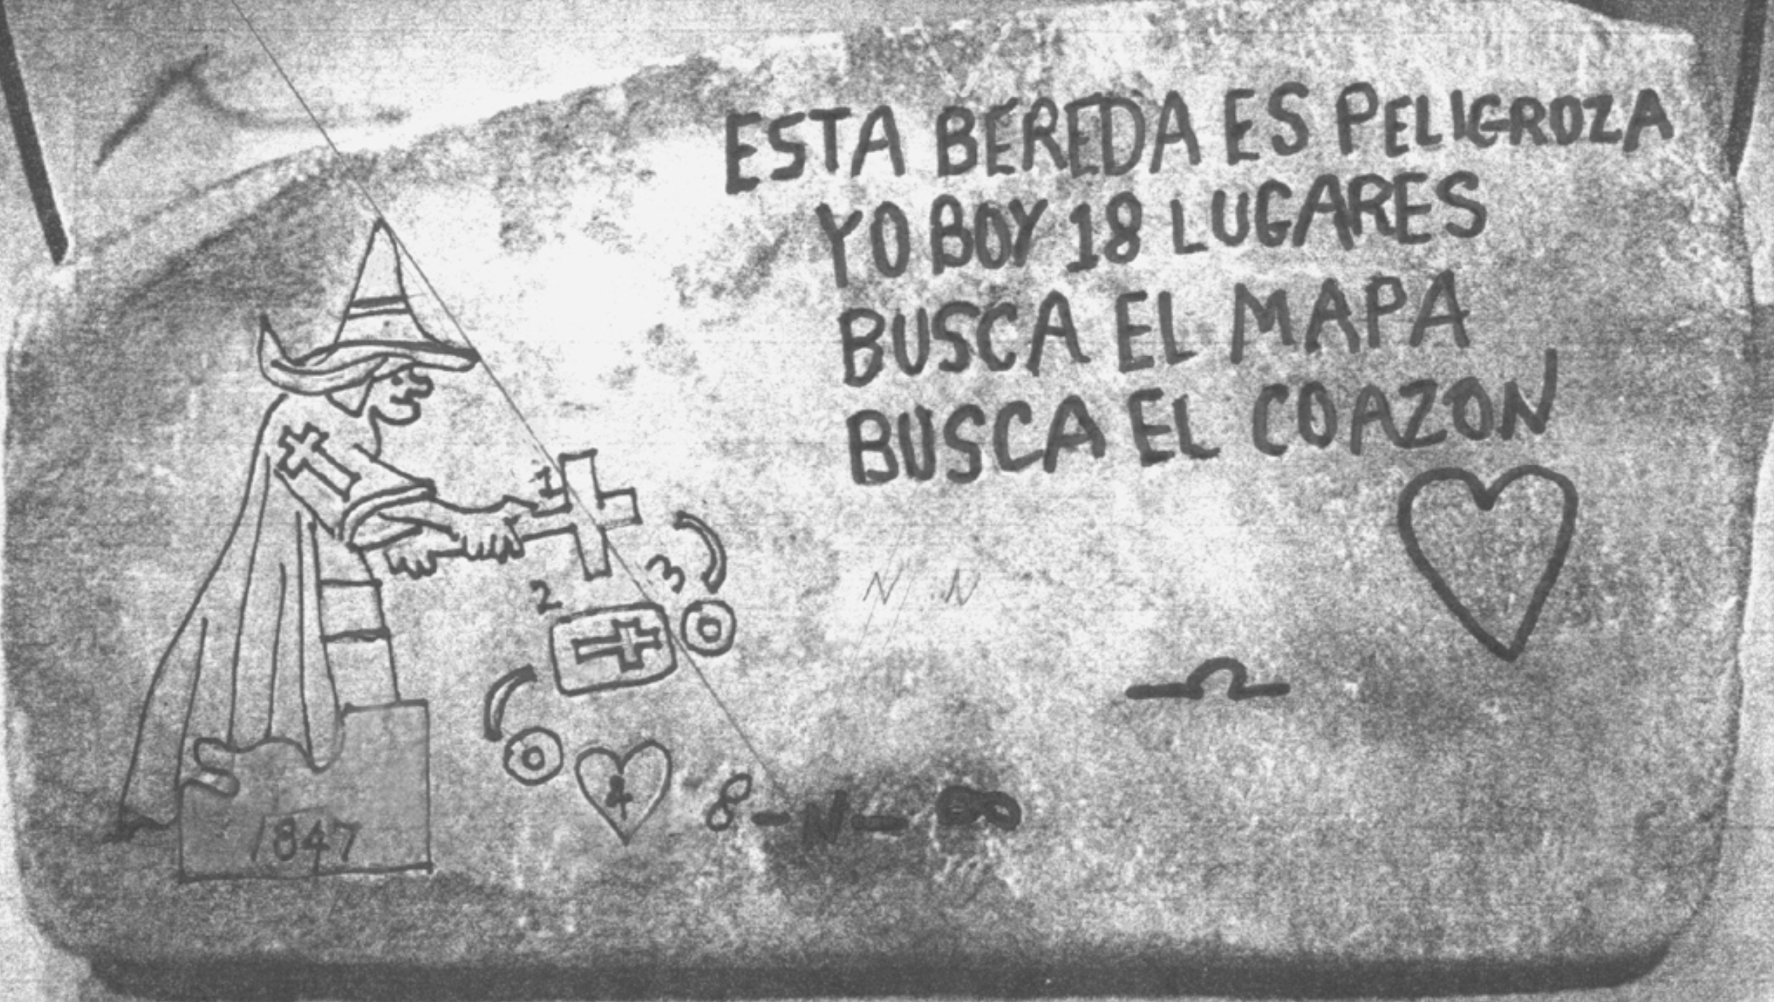 ESTA BEREDA ES PELIGROZA
YO BOY 18 LUGARES
BUSCA EL MAPA
BUSCA EL COAZON
1
2
3
N . N
4
8-N-
1847